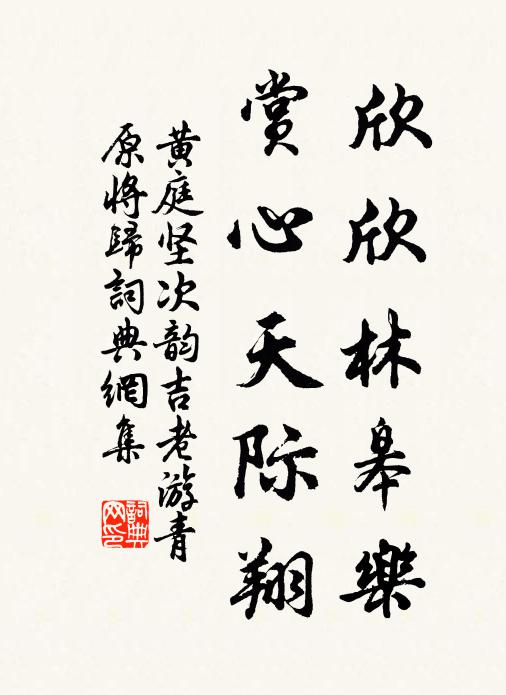 欣欣林皋樂
賞心天际翔
黃庭坚次韵吉老游青
原将歸詞典網集
詞典
网印